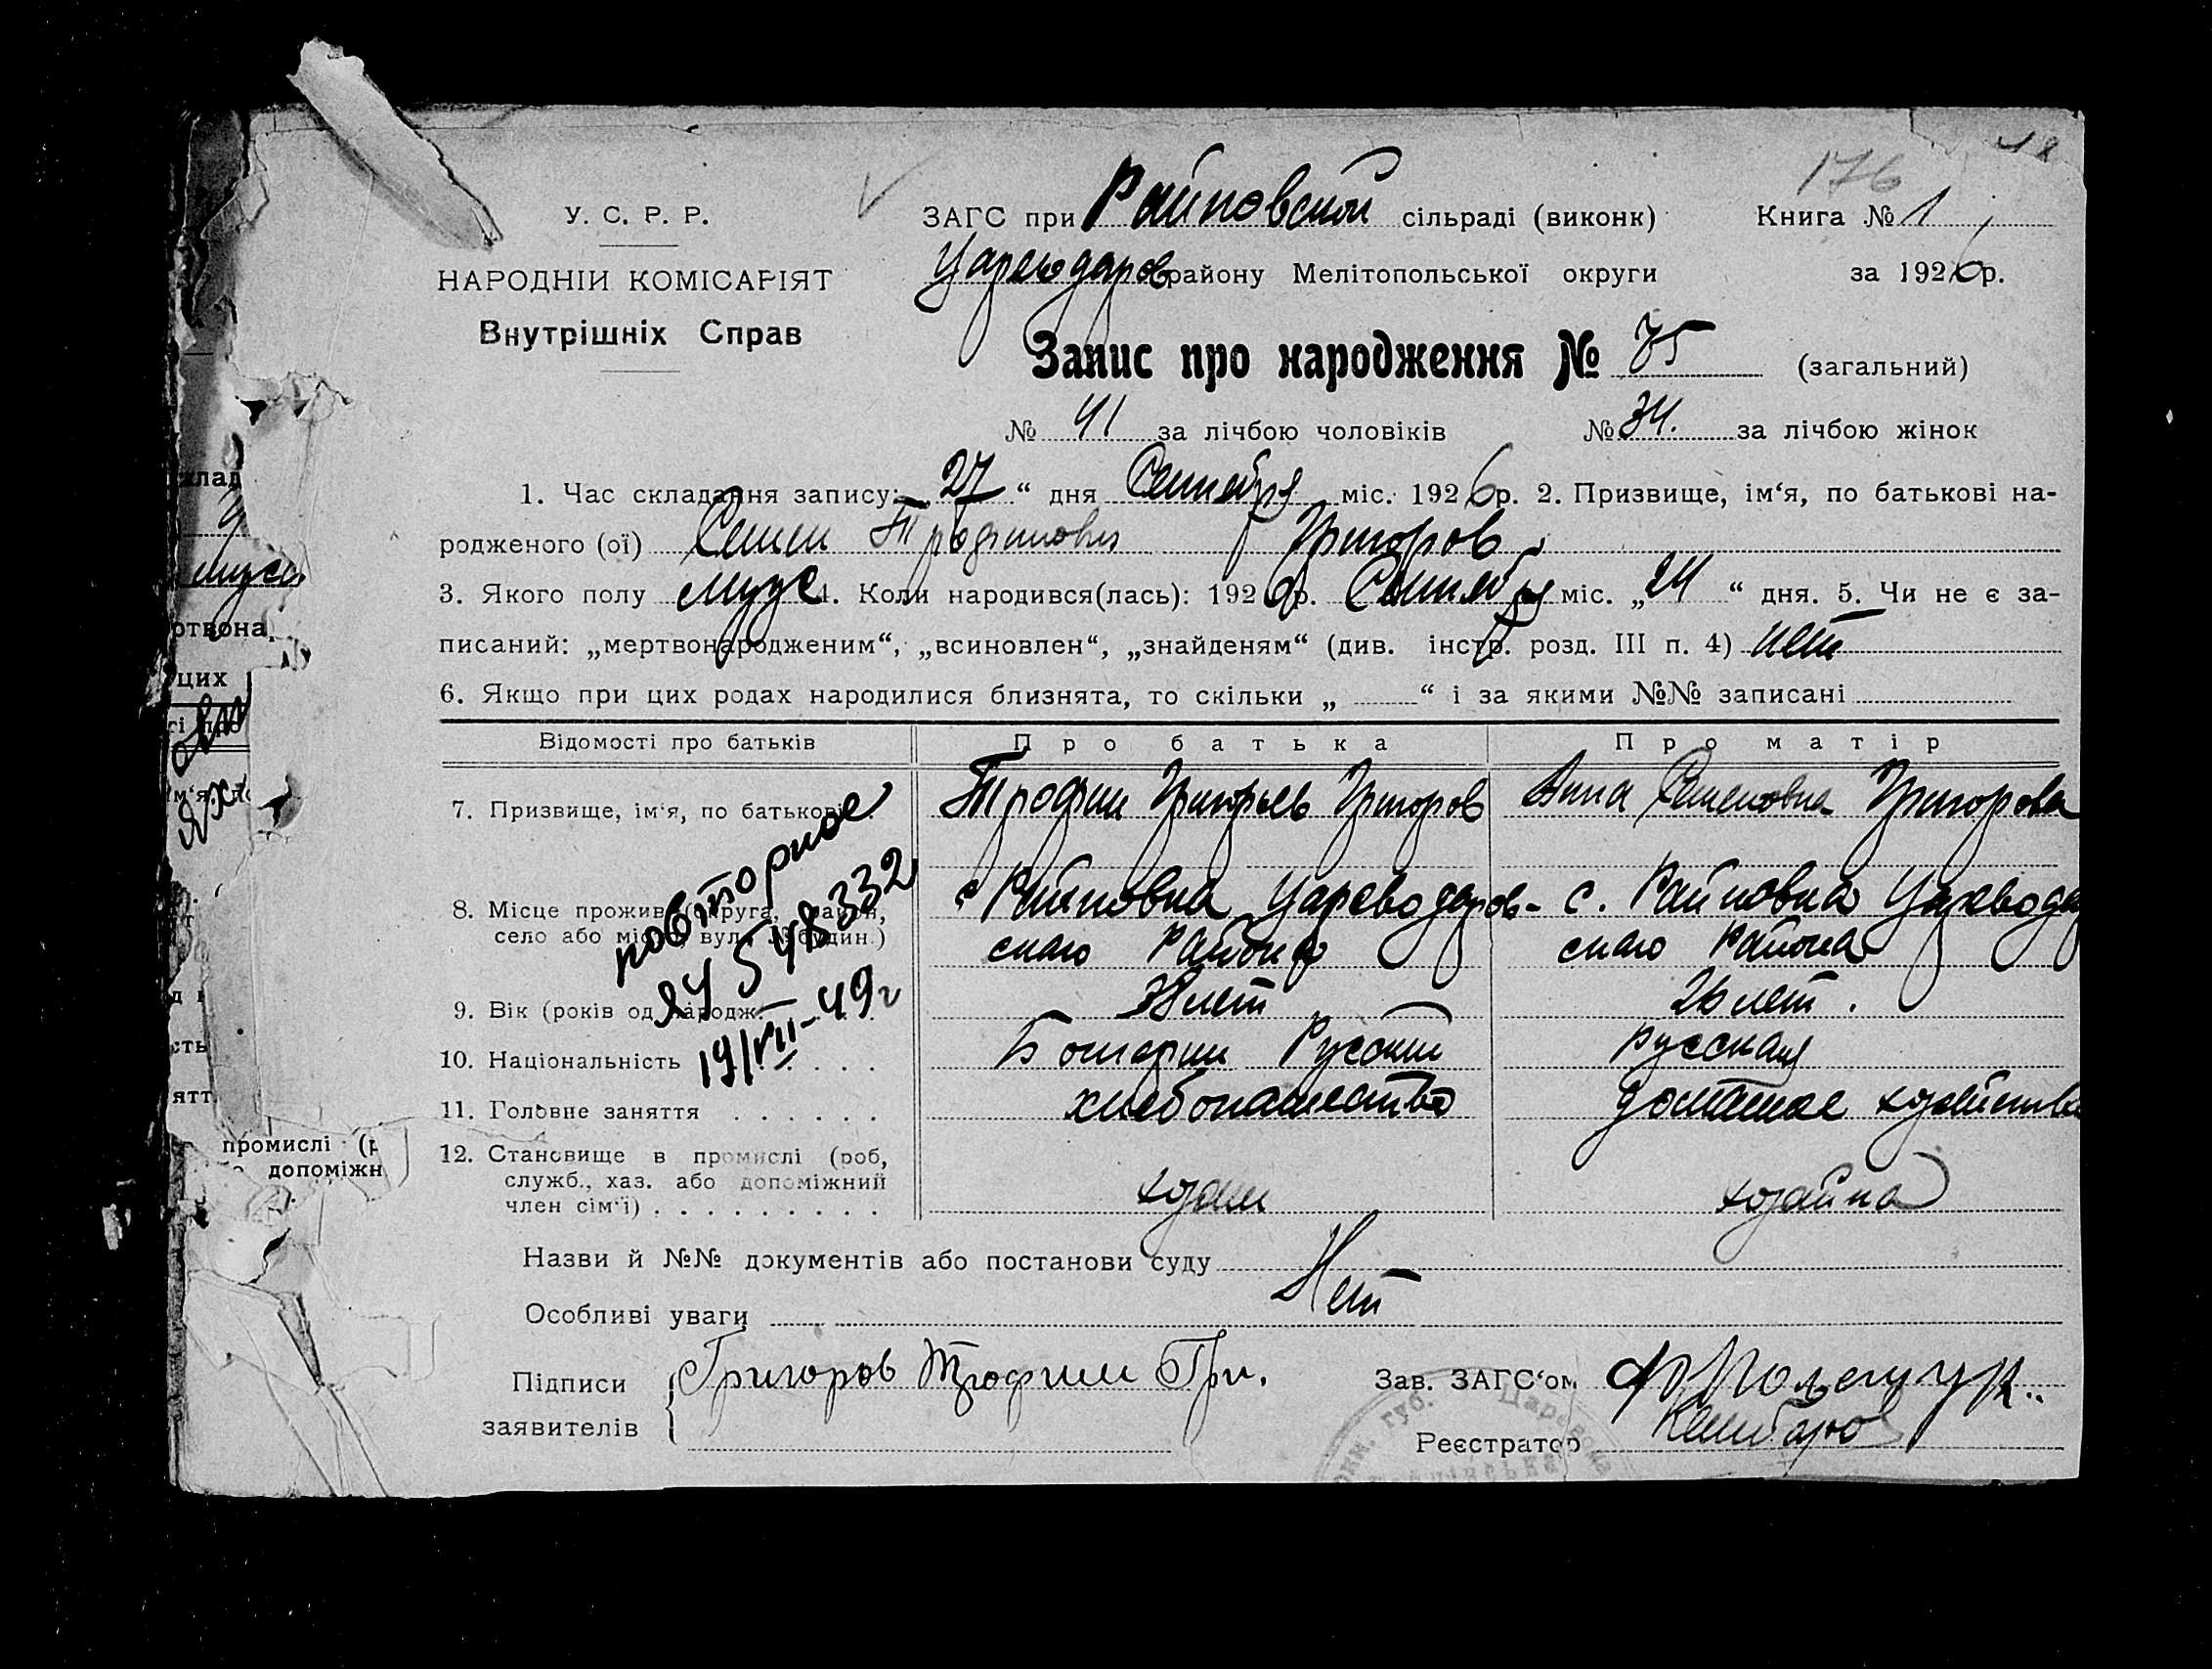 48
176
У. С. Р. Р.
НАРОДНІЙ КОМІСАРІЯТ
Внутрішніх Справ
ЗАГС при Райновской сільраді (виконк) Книга № 1
Цареводаров району Мелітопольської округи за 1926 р.
Запис про народження № 75 (загальний)
№ 41 за лічбою чоловіків № 34. за лічбою жінок
1. Час складання запису: 27 “ дня Сентября міс. 1926 р. 2. Призвище, ім‘я, по батькові на-
родженого (ої) Семен Трофимович Григоров
3. Якого полу муж 4. Коли народився(лась): 1926 р. Сентября міс. „24“ дня. 5. Чи не є за-
писаний: „мертвонародженим“, „всиновлен“, „знайденям“ (див. інстр. розд. III п. 4) нет
6. Якщо при цих родах народилися близнята, то скільки „ “ і за якими №№ записані
Відомості про батьків Про батька Про матір
7. Призвище, ім‘я, по батькові Трофим Григорьев Григоров Анна Семеновна Григорова
8. Місце прожив. (округа, район, с Райновка Цареводаров- с. Райновка Цареводар
село або місто, вул. № будин.) скаго Района скаго Района
9. Вік (років од народж. 38 лет 26 лет.
10. Національність Русский русская
11. Головне заняття хлебопашество домашнее хозяйство
12. Становище в промислі (роб,
служб., хаз. або допоміжний
член сім‘ї) хозяин хозяйка
повторное
548332
19/VII-49г
Назви й №№ документів або постанови суду
Нет
Особливі уваги
Підписи Григоров Трофим Гри. Зав. ЗАГС‘ом
заявителів Реєстратор
склад
муж
ртвона
цих
гі про
ім‘я, по
сть
ятт
промислі (р
допоміжн